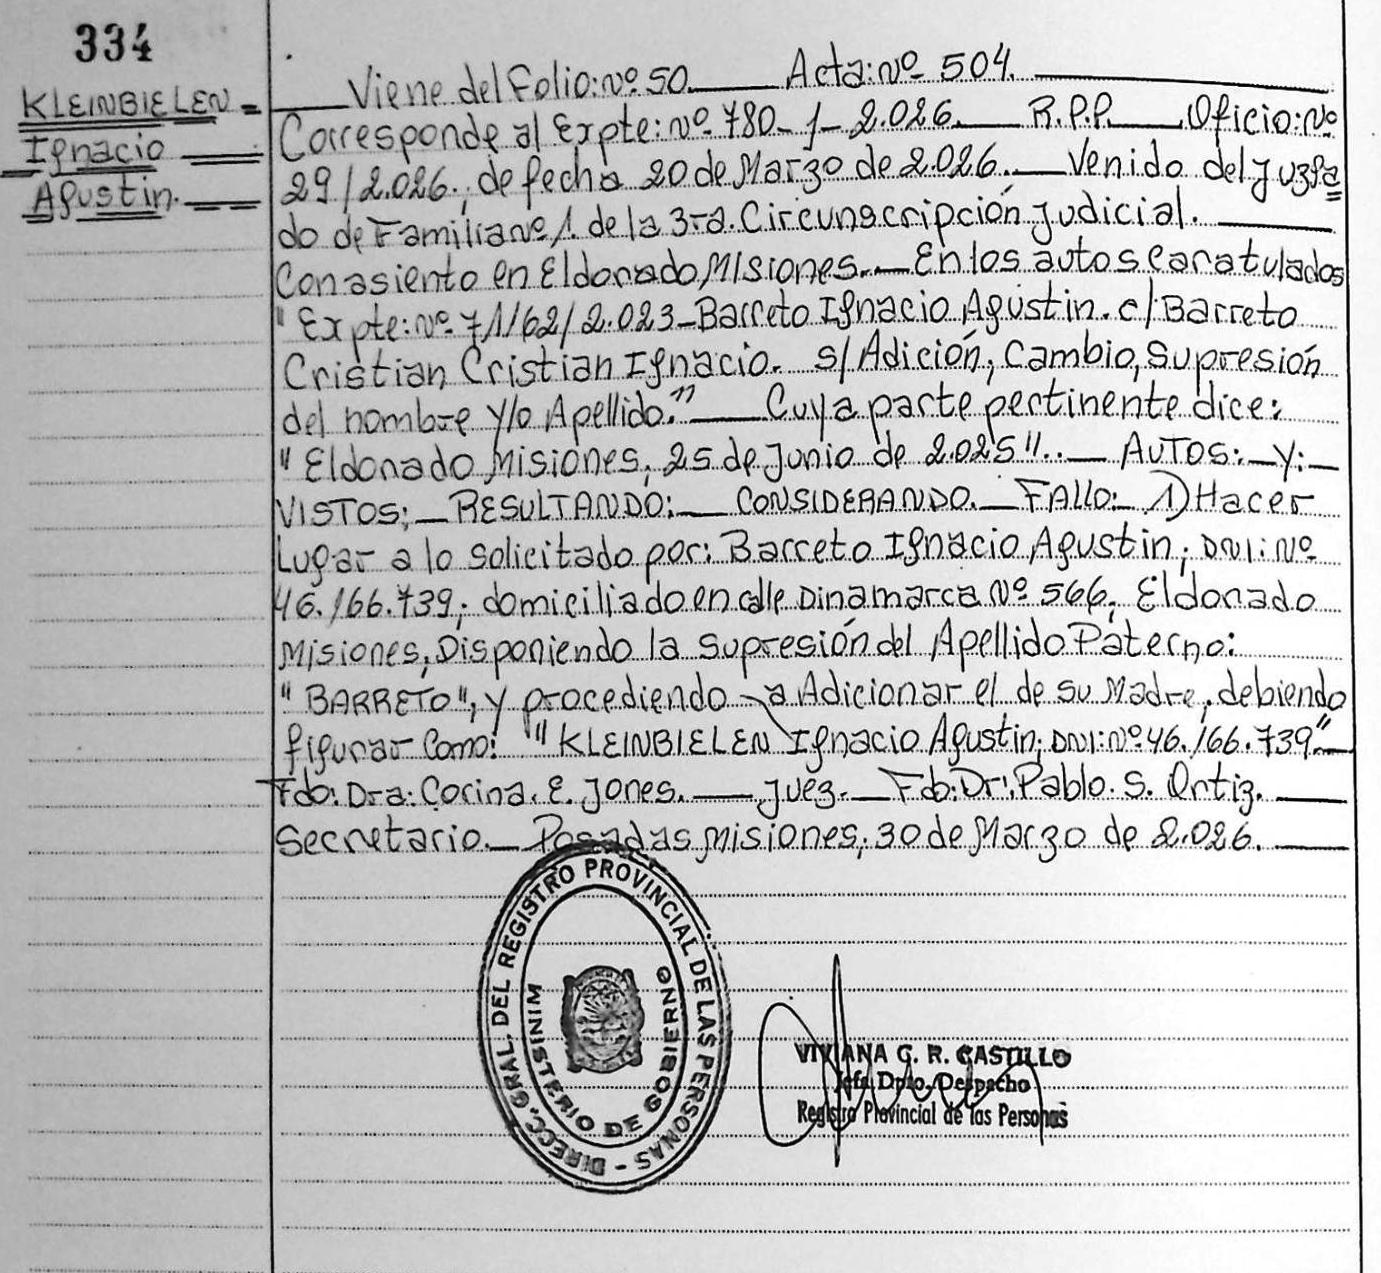 334
KLEINBIELEN=
Ignacio
Agustin.
Viene del Folio: Nº 50. Acta: Nº 504.
Corresponde al Expte: Nº 780-1-2.026. R.P.P. Oficio: Nº
29/2.026, de fecha 20 de Marzo de 2.026. Venido del Juzga
do de Familia Nº 1. de la 3ra. Circunscripción Judicial.
Con asiento en Eldorado, Misiones. En los autos caratulados
"Expte: Nº 71162/2.023-Barreto Ignacio Agustin. c/ Barreto
Cristian Cristian Ignacio. s/ Adición, Cambio, Supresión
del nombre y/o Apellido." Cuya parte pertinente dice:
"Eldorado Misiones, 25 de Junio de 2.025". AUTOS: Y:
VISTOS: RESULTANDO: CONSIDERANDO. FALLO: 1) Hacer
Lugar a lo solicitado por: Barreto Ignacio Agustin, DNI: Nº
46.166.739; domiciliado en calle Dinamarca Nº 566, Eldorado
Misiones, Disponiendo la supresión del Apellido Paterno:
"BARRETO", y procediendo a Adicionar el de su Madre, debiendo
figurar como: "KLEINBIELEN Ignacio Agustin; DNI: Nº 46.166.739"
Fdo: Dra: Corina. E. Jones. Juez. Fdo: Dr: Pablo. S. Ortiz.
Secretario. Posadas Misiones, 30 de Marzo de 2.026.
DIRECC. GRAL. DEL REGISTRO PROVINCIAL DE LAS PERSONAS -
MINISTERIO DE GOBIERNO
VIVIANA G. R. CASTILLO
Jefa Dpto. Despacho
Registro Provincial de las Personas